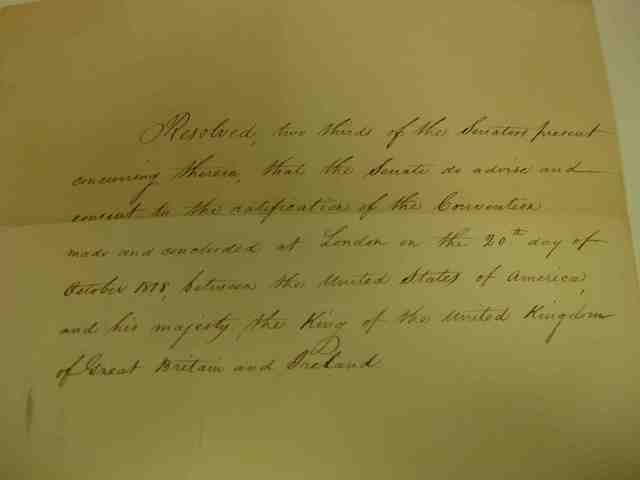 Resolved, two thirds of the Senators present
concurring therein, that the Senate do advise and
consent to the ratification of the Convention
made and concluded at London on the 20th day of
October 1818, between the United States of America,
and his majesty, the King of the United Kingdom
of Great Britain and Ireland